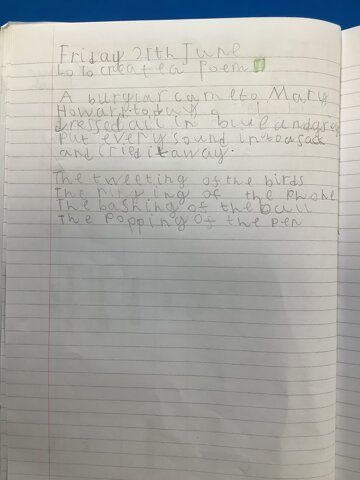 Friday 25th June
Lo To create a poem
A burglar came to Mary
Howard today
dressed all in blue and grey
Put every sound into a sack
and cried it away.
The tweeting of the birds
The ringing of the phone
The bashing of the ball
The Popping of the Pen